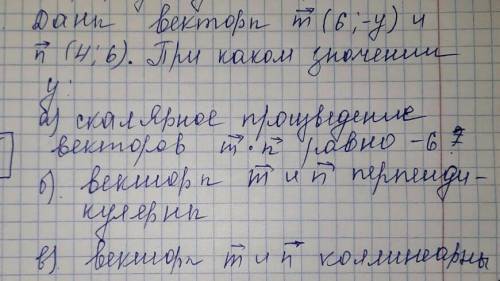 Даны векторы m⃗ (6;-y) и
n⃗ (4;6). При каком значении
y:
а) скалярное произведение
векторов m⃗ · n⃗ равно -6?
б). векторы m⃗ и n⃗ перпенди-
кулярны
в). векторы m⃗ и n⃗ коллинеарны